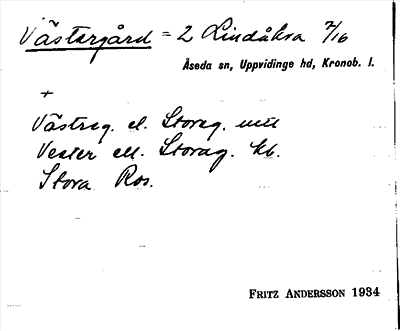 Västergård = 2 Lindåkra 7/16
Åseda sn, Uppvidinge hd, Kronob. l.
+
Västreg. el. Storeg. uttl
Vester ell. Storag. kb.
Stora Ros.
FRITZ ANDERSSON 1934